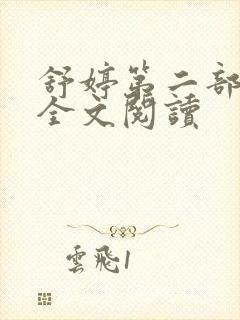 舒婷第二部
全文閱讀
雲飛1